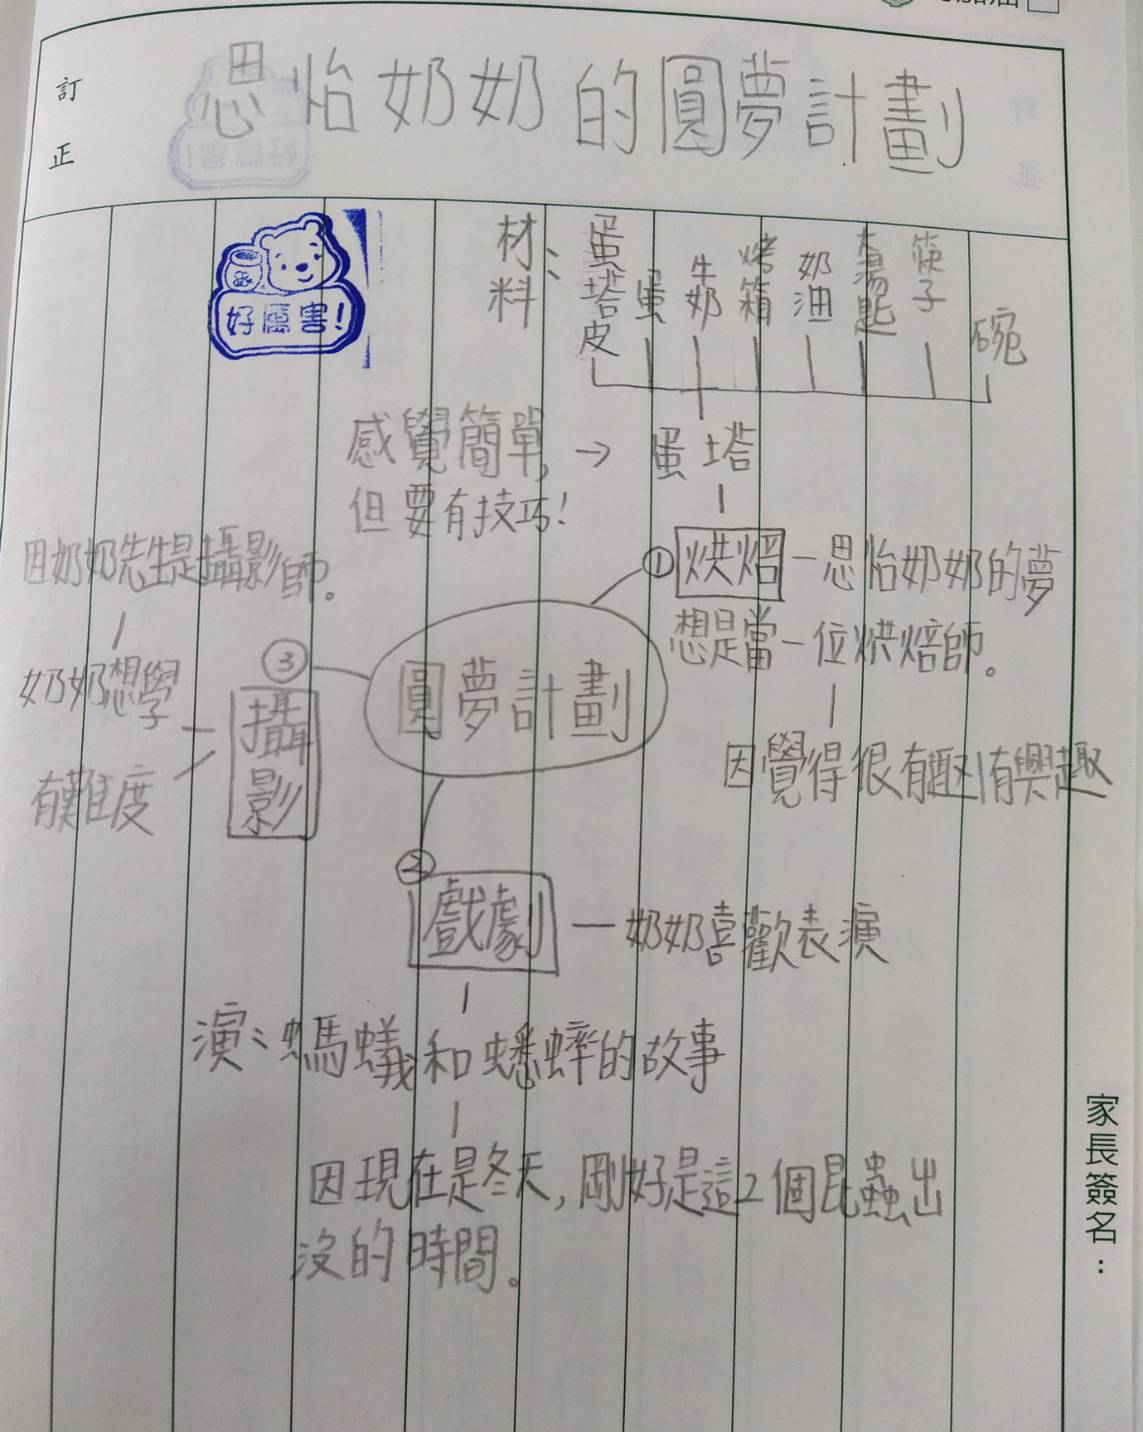 訂正
思怡奶奶的圓夢計劃
好厲害!
材料:
蛋塔皮
蛋
牛奶
烤箱
奶油
大湯匙
筷子
碗
蛋塔
感覺簡單,→
但要有技巧!
①烘焙－思怡奶奶的夢
想是當一位烘焙師。
因覺得很有趣,有興趣
圓夢計劃
②戲劇－奶奶喜歡表演
演:螞蟻和蟋蟀的故事
因現在是冬天,剛好是這2個昆蟲出
沒的時間。
③攝影
奶奶想學
因奶奶先生是攝影師。
有難度
家長簽名: